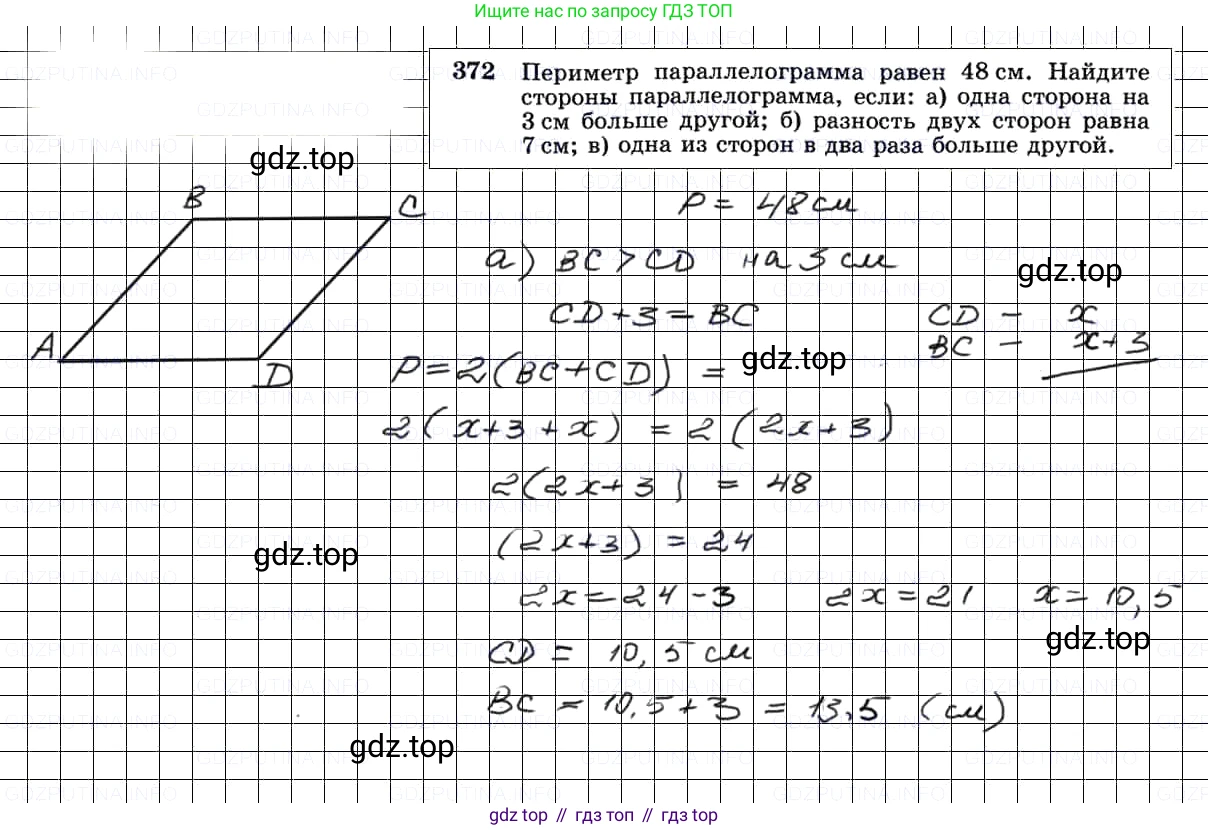 Ищите нас по запросу ГДЗ ТОП
372 Периметр параллелограмма равен 48 см. Найдите
стороны параллелограмма, если: а) одна сторона на
3 см больше другой; б) разность двух сторон равна
7 см; в) одна из сторон в два раза больше другой.
gdz.top
B
C
A
D
P = 48 см
а) BC > CD на 3 см
gdz.top
CD + 3 = BC
CD – x
BC – x+3
P = 2(BC + CD) =
gdz.top
2(x+3+x) = 2(2x+3)
2(2x+3) = 48
(2x+3) = 24
gdz.top
2x = 24 - 3 2x = 21 x = 10,5
gdz.top
CD = 10,5 см
BC = 10,5 + 3 = 13,5 (см)
gdz.top
gdz top // гдз топ // гдз top